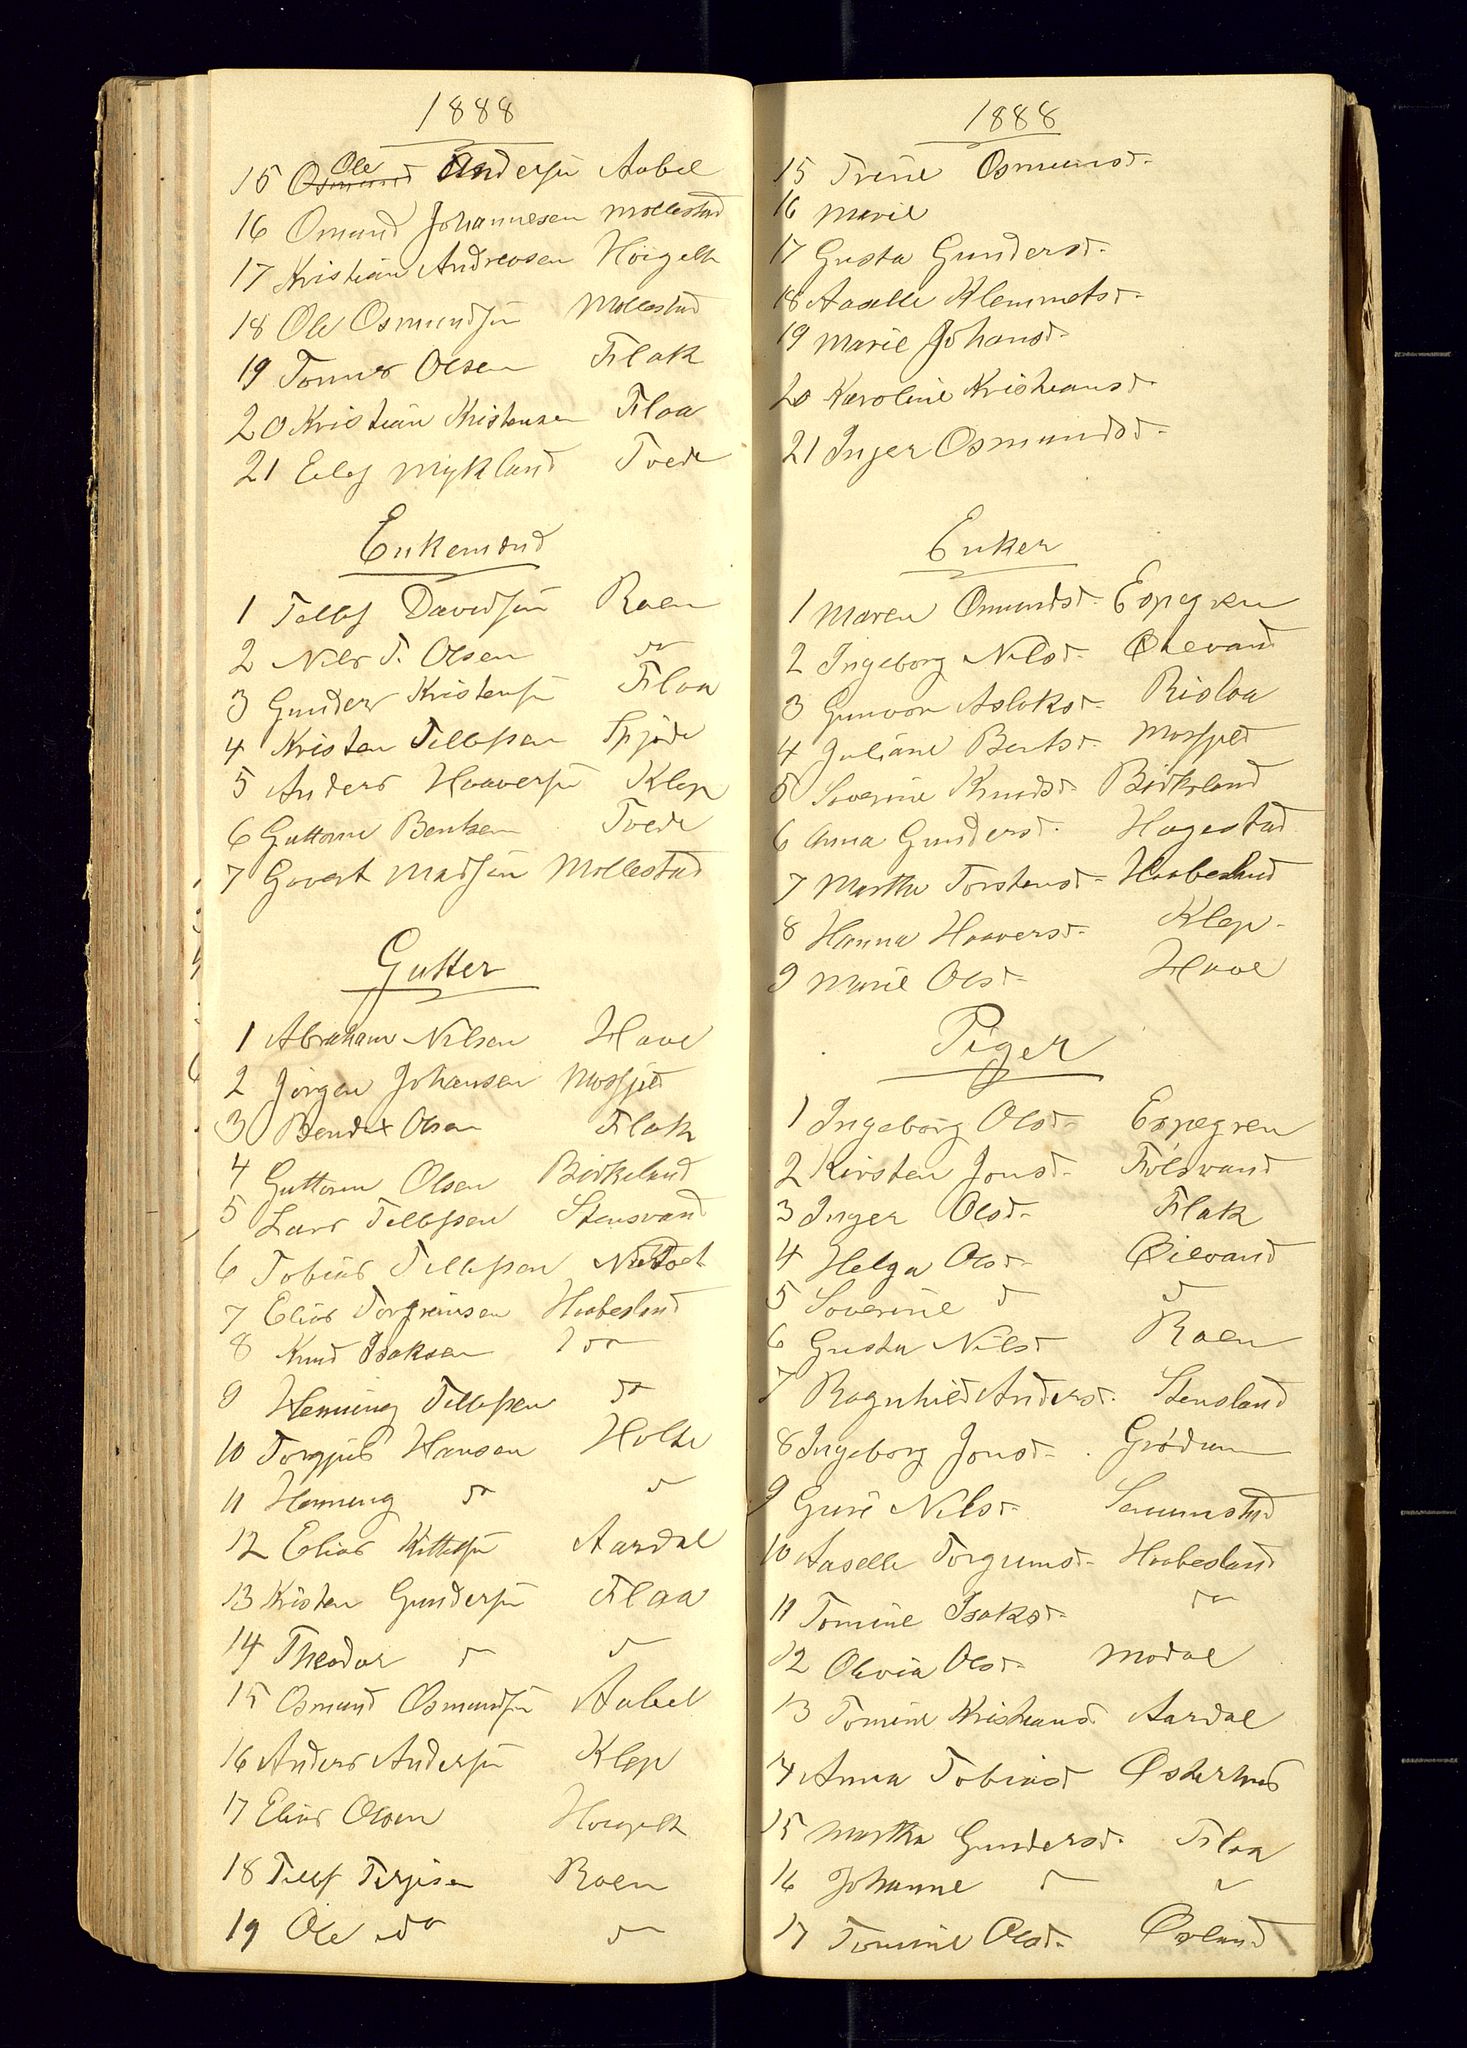 1888
15 Osmund Ole Andersen Aabel
16 Omund Johannesen Mollestad
17 Kristian Andreasen Høigelt
18 Ole Osmundsen Mollestad
19 Tomas Olsen Flak
20 Kristian Kristensen Flaa
21 Ellef Mykland Tvede
Enkemænd
1 Tellef Davidsen Roen
2 Nils T. Olsen do
3 Gunder Kristensen Flaa
4 Kristen Tellefsen
5 Anders Haaversen Klep
6 Guttorm Bentsen Tvede
7 Govert Madsen Mollestad
Gutter
1 Abraham Nilsen Have
2 Jörgen Johansen Mosfjeld
3 Bendix Olsen Flak
4 Guttorm Olsen Birkeland
5 Lars Tellefsen Stensvand
6 Tobias Tellefsen
7 Elias Torgrimsen Haabesland
8 Knud Isaksen do
9 Henning Tellefsen do
10 Torgjus Hansen Holte
11 Henning do do
12 Elias Kittelsen Aardal
13 Kristen Gundersen Flaa
14 Theodor do do
15 Osmund Osmundsen Aabel
16 Anders Andersen Klep
17 Elias Olsen Høigelt
18 Tellef Terjesen Roen
19 Ole do do
1888
15 Trine Osmundsd.
16 Marie
17 Gusta Gundersd.
18 Aaselle Klemmetsd.
19 Marie Johansd.
20 Karoline Kristiansd.
21 Inger Osmundsd.
Enker
1 Maren Omundsd. Espegren
2 Ingeborg Nilsd. Øievand
3 Gunvor Aslaksd. Risløa
4 Juliane Bentsd. Mosfjeld
5 Severine Knudsd. Birkeland
6 Anna Gundersd. Hagestad
7 Martha Torstensd. Haabesland
8 Hanna Haaversd. Klep
9 Marie Olsd. Have
Piger
1 Ingeborg Olsd. Espegren
2 Kirsten Jonsd.
3 Inger Olsd. Flak
4 Helga Olsd. Øievand
5 Severine d d
6 Gusta Nilsd Roen
7 Ragnhild Andersd. Stensland
8 Ingeborg Jonsd. Grødum
9 Guri Nilsd.
10 Aaselle Torgrimsd. Haabesland
11 Tomine Isaksd. do
12 Olevia Olsd. Modal
13 Tomine Kristiansd. Aardal
14 Anna Tobiasd Østerhus
15 Martha Gundersd. Flaa
16 Johanne d d
17 Tomine Olsd. Øvland